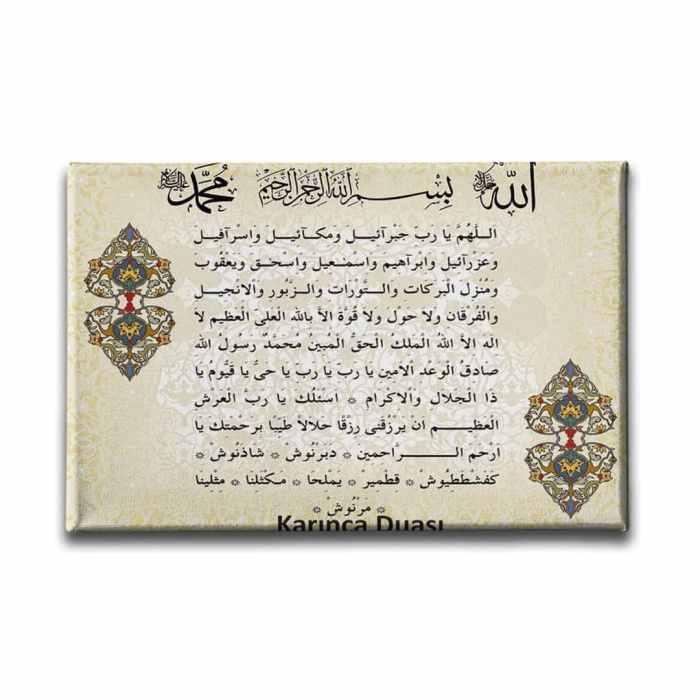 الله جل جلاله بسم الله الرحمن الرحيم محمد
اَللّٰهُمَّ يَا رَبَّ جَبْرَٓائيلَ وَمِكَٓائيلَ وَاِسْرَافيلَ
وَعِزْرَٓائيلَ وَاِبْرَاهيمَ وَاِسْمٰعيلَ وَاِسْحٰقَ وَيَعْقُوبَ
وَمُنْزِلَ الْبَرَكَاتِ وَالتَّوْرَاتِ وَالزَّبُورِ وَالْاِنْجيلِ
وَالْفُرْقَانِ وَلَا حَوْلَ وَلَا قُوَّةَ اِلَّا بِاللّٰهِ الْعَلِىِّ الْعَظيمِ لَٓا
اِلٰهَ اِلَّا اللّٰهُ الْمَلِكُ الْحَقُّ الْمُبينُ مُحَمَّدٌ رَسُولُ اللّٰهِ
صَادِقُ الْوَعْدِ الْاَمينِ يَا رَبِّ يَا رَبِّ يَا حَىُّ يَا قَيُّومُ يَا
ذَا الْجَلَالِ وَالْاِكْرَامِ ۞ اَسْئَلُكَ يَا رَبَّ الْعَرْشِ
الْعَظيمِ اَنْ يَرْزُقَنى رِزْقًا حَلَالًا طَيِّبًا بِرَحْمَتِكَ يَٓا
اَرْحَمَ الرَّاحِمينَ ۞ دَبَرْنُوشْ ۞ شَاذَنُوشْ ۞
كَفَشْطَطِيُوشْ ۞ قِطْميرْ ۞ يَمْلِحَا ۞ مَكْثَلِنَا ۞ مِثْلِينَا
۞ مَرْنُوشْ ۞
Karınca Duası